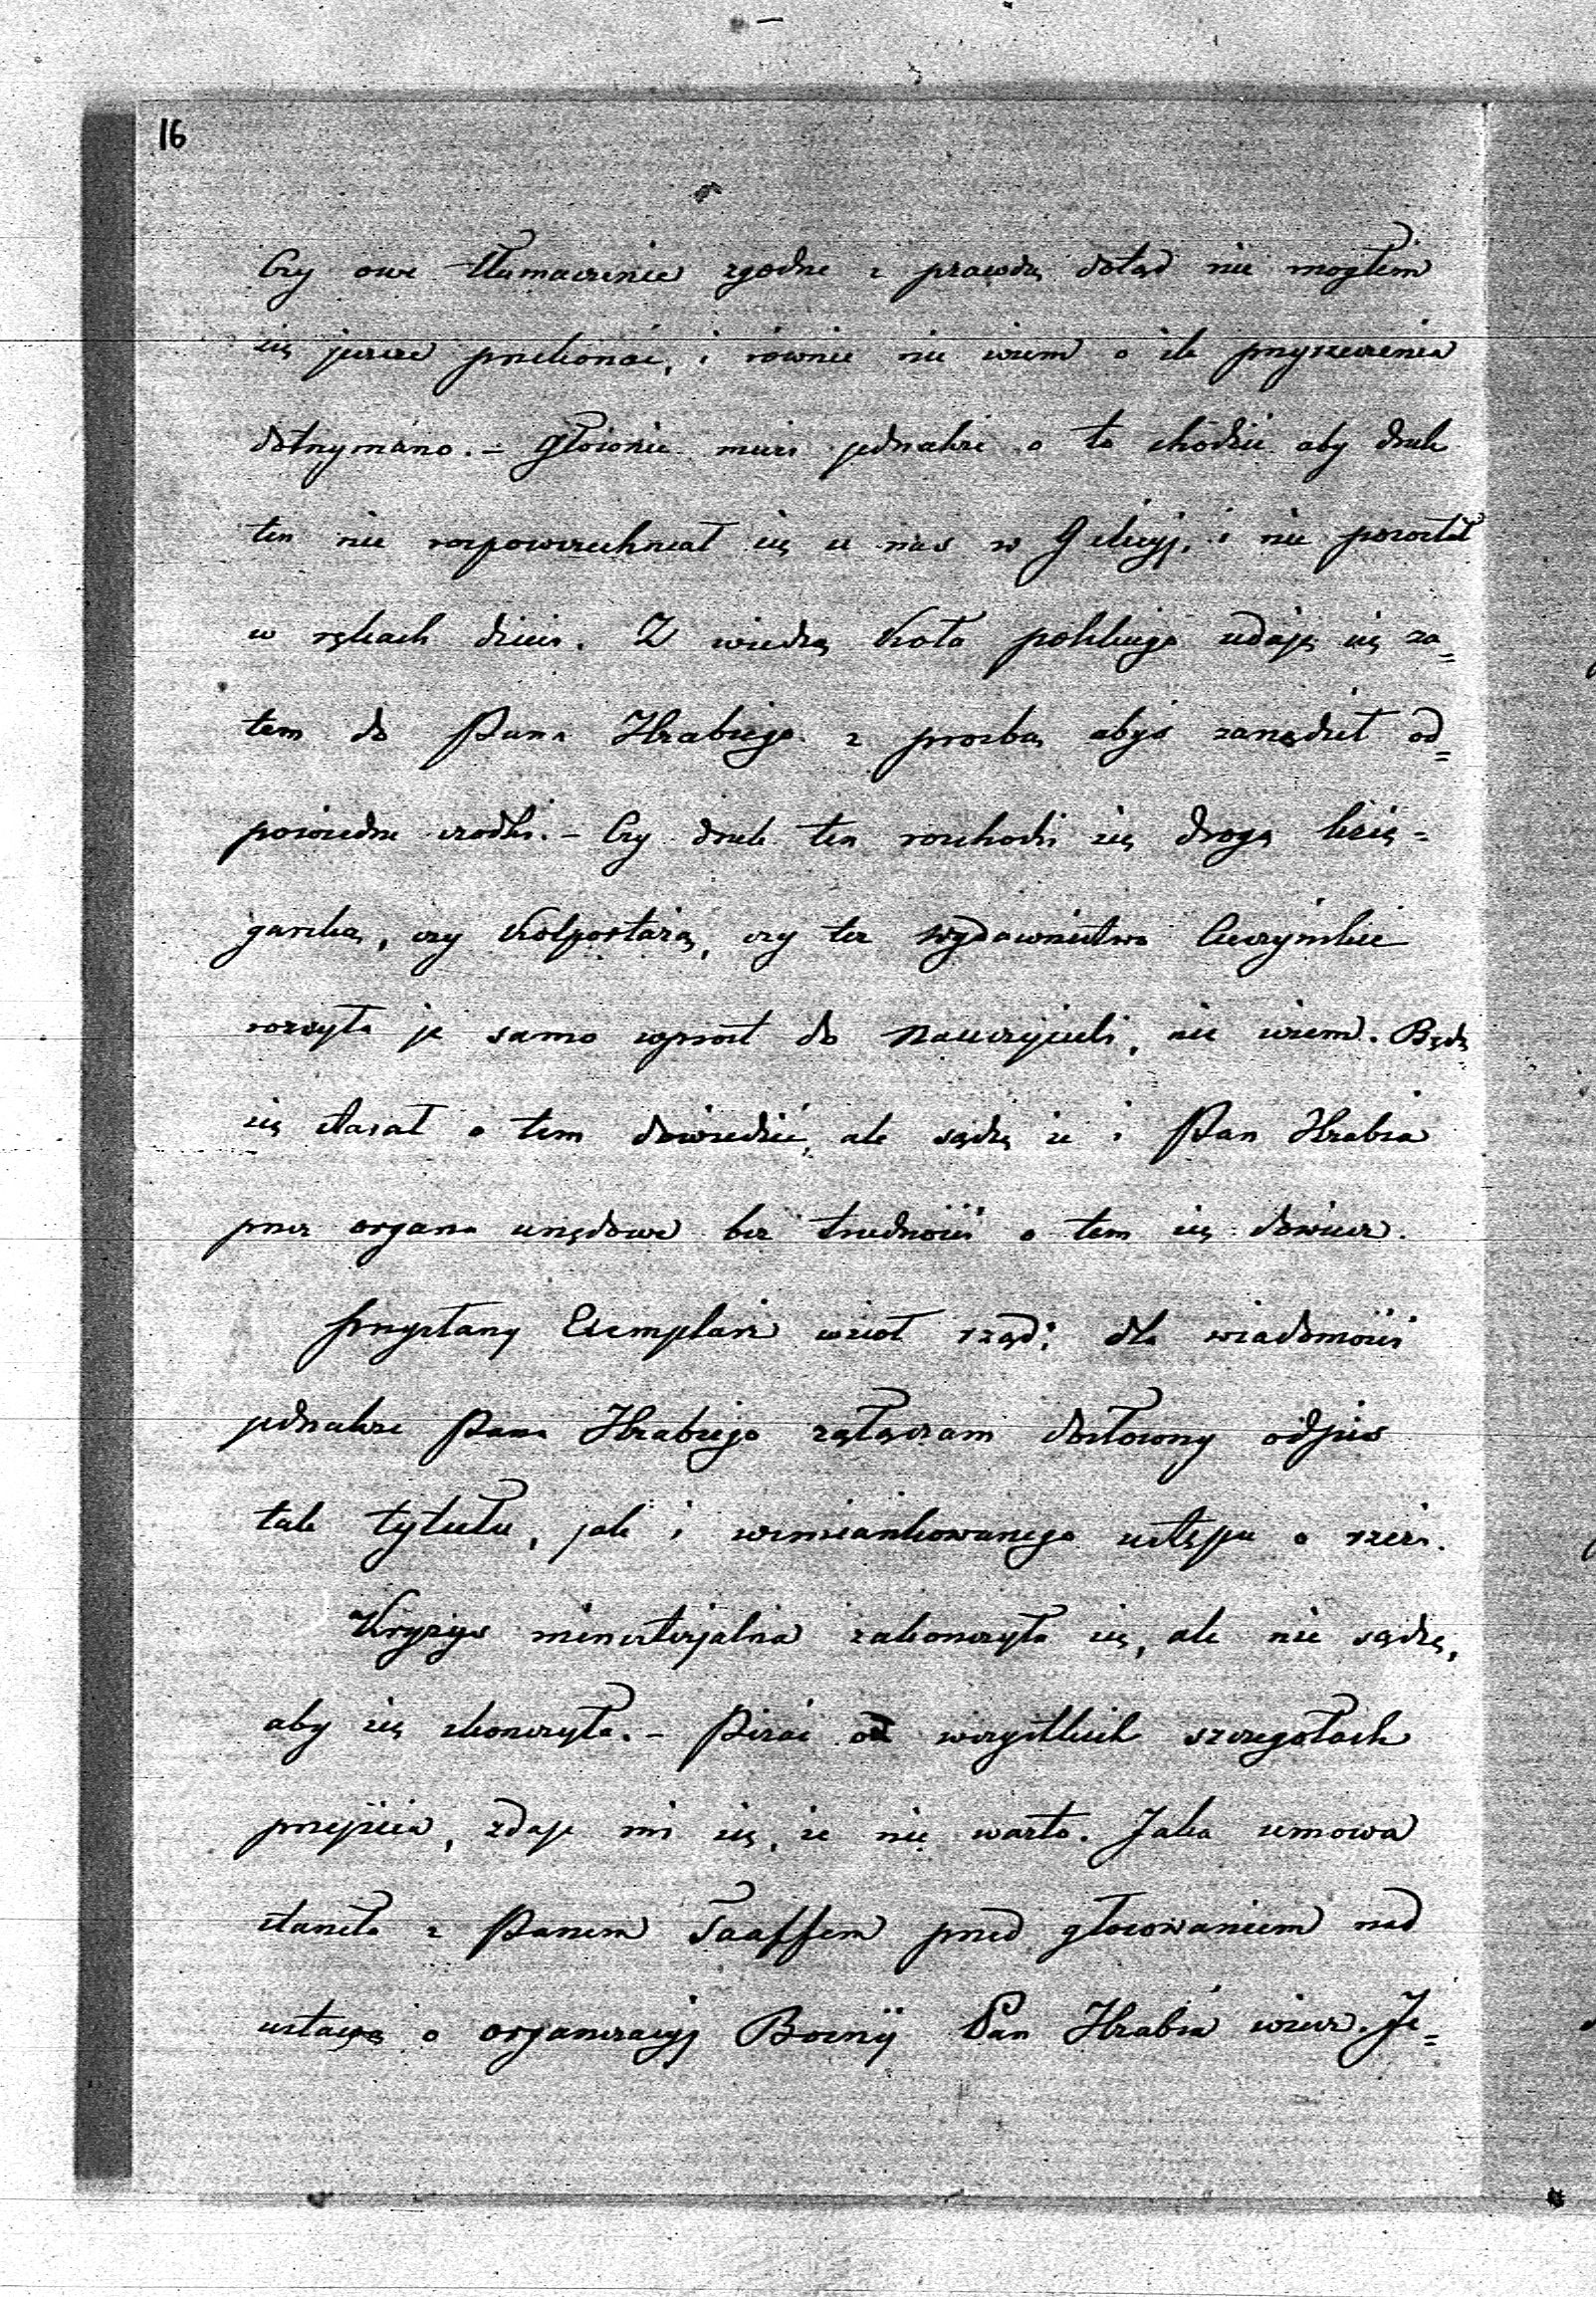 16
Czy owe tłumaczenie zgodne z prawdą dotąd nie mogłem
się jeszcze przekonać, i rownie nie wiem o ile przyrzeczenia
dotrzymano. – Głownie musi jednakże o to chodzić aby druk
ten nie rozpowszechniał się u nas w Galicyj, i nie pozostał
w rękach dzieci. Z wiedzą Koła polskiego udaję się za=
tem do Pana Hrabiego z prozbą abyś zarządził od=
powiedne srodki. – Czy druk ten rozchodzi się drogą księ=
garską, czy Kolportażą, czy też wydawnictwo Cieszyńskie
rozsyła je samo wprost do Nauczycieli, nie wiem. Będę
się starał o tem dowiedzić, ale sądzę że i Pan Hrabia
przez organa urzędowe bez trudności o tem się dowiesz.
Przysłany Exemplarz wziął rząd; dla wiadomości
jednakże Pana Hrabiego załączam dosłowny odpis
tak tytułu, jak i wzmiankowanego ustępu o rzezi.
Kryzys ministerjalna zakonczyła się, ale nie sądzę,
aby się skonczyła. – Pisać o wszystkich szczegołach
przejścia, zdaje mi się, że nie warto. Jaka umowa
staneła z Panem Taaffem przed głosowaniem nad
ustawą o organizacyj Bosnij Pan Hrabia wiesz. Je=